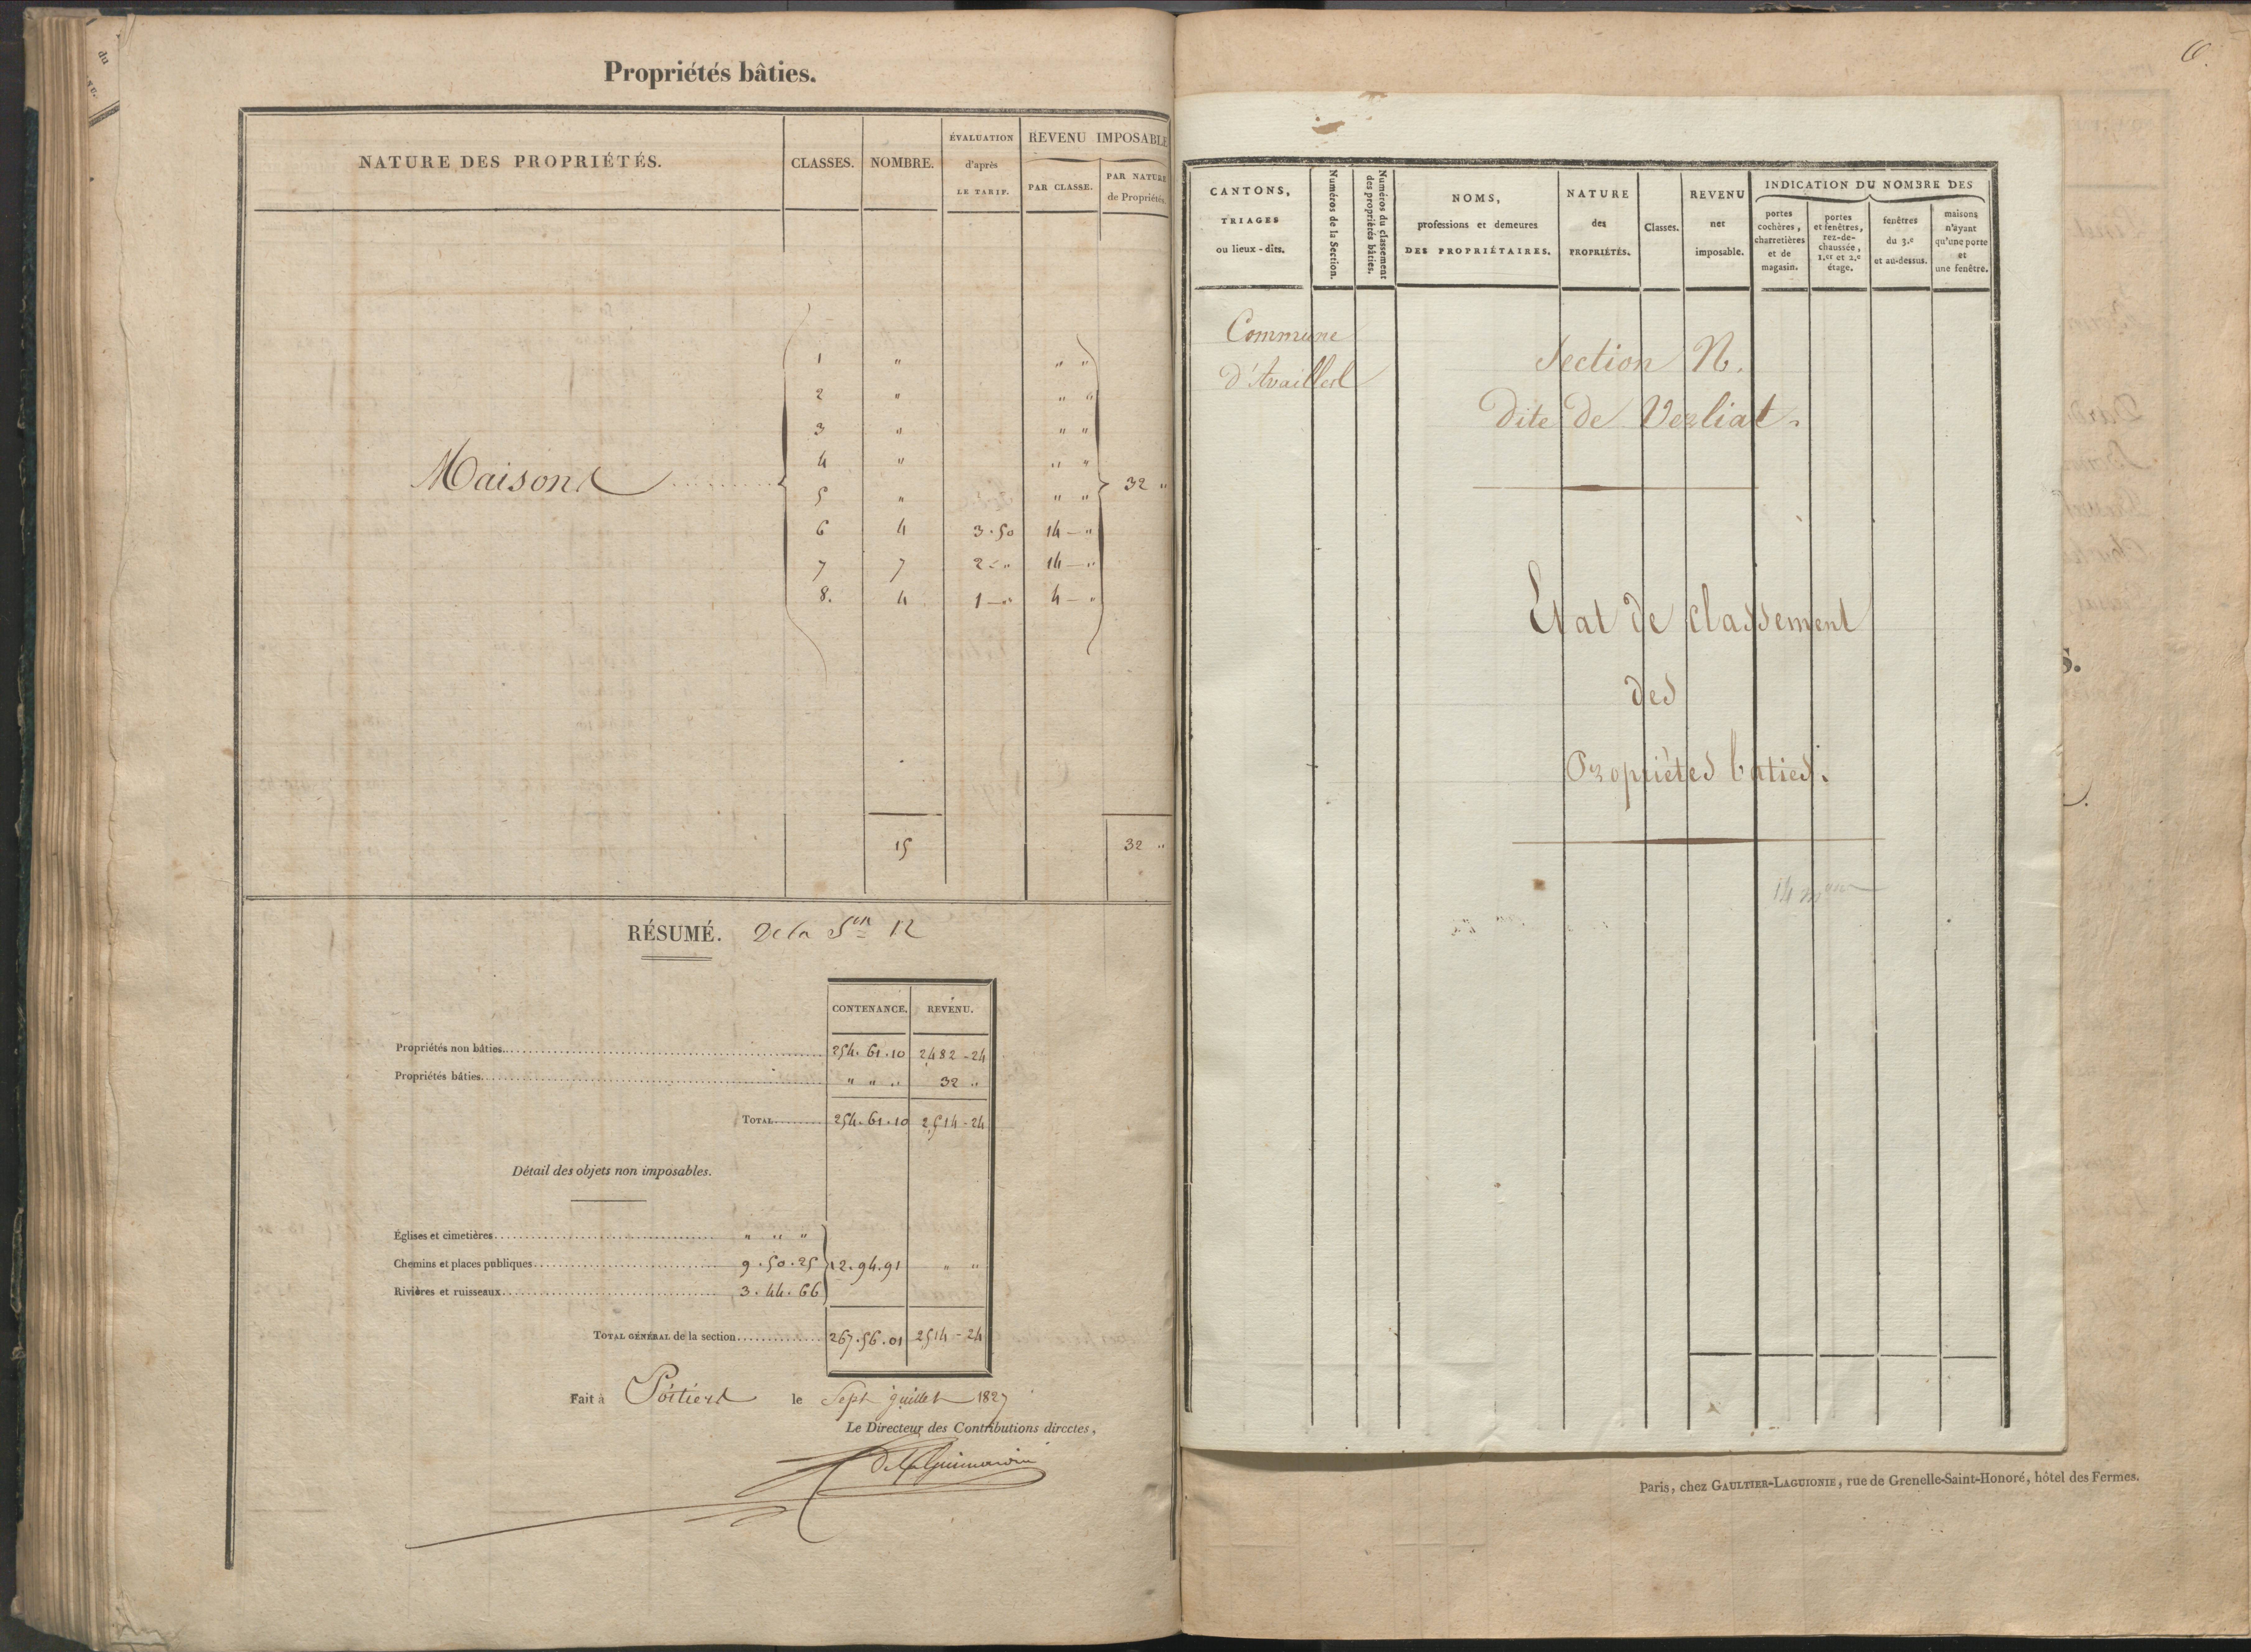 du
Propriétés bâties.
NATURE DES PROPRIÉTÉS.
CLASSES.
NOMBRE.
ÉVALUATION
d'après
LE TARIF.
REVENU IMPOSABLE
PAR CLASSE.
PAR NATURE
de Propriétés.
1 " " "
2 " " "
3 " " "
4 " " "
Maisons 32 "
5 " " "
6 4 3.50 14 — "
7 7 2 — " 14 — "
8. 4 1 — " 4 — "
15 32 "
RÉSUMÉ. De la Son 12
CONTENANCE. REVENU.
Propriétés non bâties 254. 61. 10 2482 - 24
Propriétés bâties " " " 32 "
TOTAL 254. 61. 10 2514 - 24
Détail des objets non imposables.
Églises et cimetières " " "
Chemins et places publiques 9. 50. 25 12. 94. 91 " "
Rivières et ruisseaux 3. 44. 66
TOTAL GÉNÉRAL de la section 267. 56. 01 2514 - 24
Fait à Poitiers le Sept juillet 1827
Le Directeur des Contributions directes,
CANTONS,
TRIAGES
ou lieux-dits.
Numéros de la Section.
Numéros du classement
des propriétés bâties.
NOMS,
professions et demeures
DES PROPRIÉTAIRES.
NATURE
des
PROPRIÉTÉS.
Classes.
REVENU
net
imposable.
INDICATION DU NOMBRE DES
portes
cochères,
charretières
et de
magasin.
portes
et fenêtres,
rez-de-
chaussée,
1.er et 2.e
étage.
fenêtres
du 3.e
et au-dessus.
maisons
n'ayant
qu'une porte
et
une fenêtre.
Commune
d'Availles
Section N.
Dite de Verliat.
Etat de classement
des
Propriétés bâties.
Paris, chez GAULTIER-LAGUIONIE, rue de Grenelle-Saint-Honoré, hôtel des Fermes.